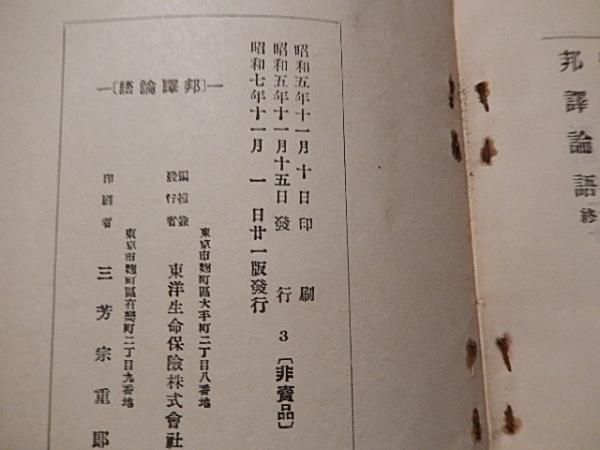 邦譯論語 終
昭和五年十一月十日印刷
昭和五年十一月十五日發行 3〔非賣品〕
昭和七年十一月一日廿一版發行
—〔邦譯論語〕—
東京市麴町區大手町二丁目八番地
編輯兼
發行者
東洋生命保險株式會社
東京市麴町區有樂町二丁目九番地
印刷者 三芳宗重郎